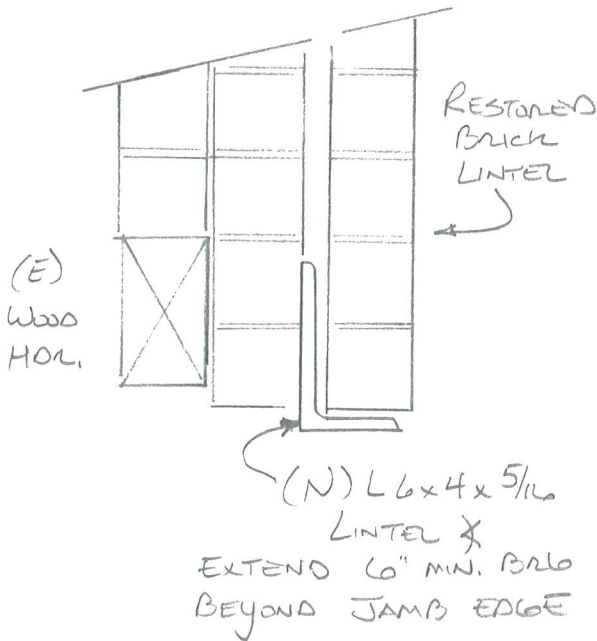 RESTORED
BRICK
LINTEL
(E)
WOOD
HDR.
(N) L 6x4x 5/16
LINTEL &
EXTEND 6" MIN. BRG
BEYOND JAMB EDGE